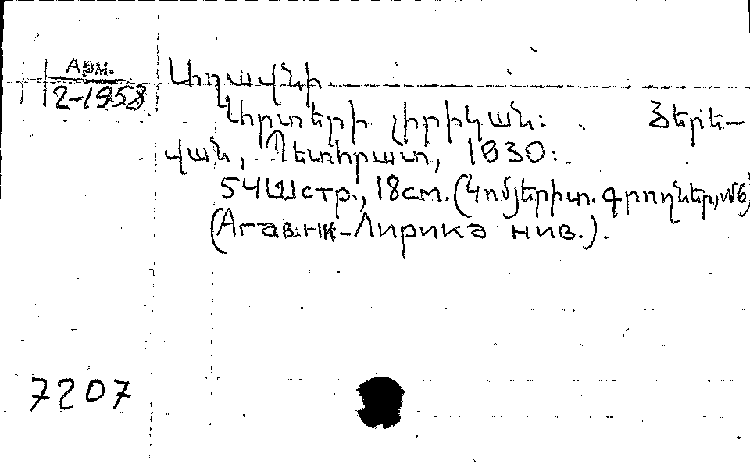 Арм.
2-1958
Աղավնի
Արտերի լիրիկան: Յերե-
վան, Պետհրատ, 1930:
54 стр., 18 см. (Կոմյերիտ. գրողներ,
(Агавни-Лирика нив.).
7207